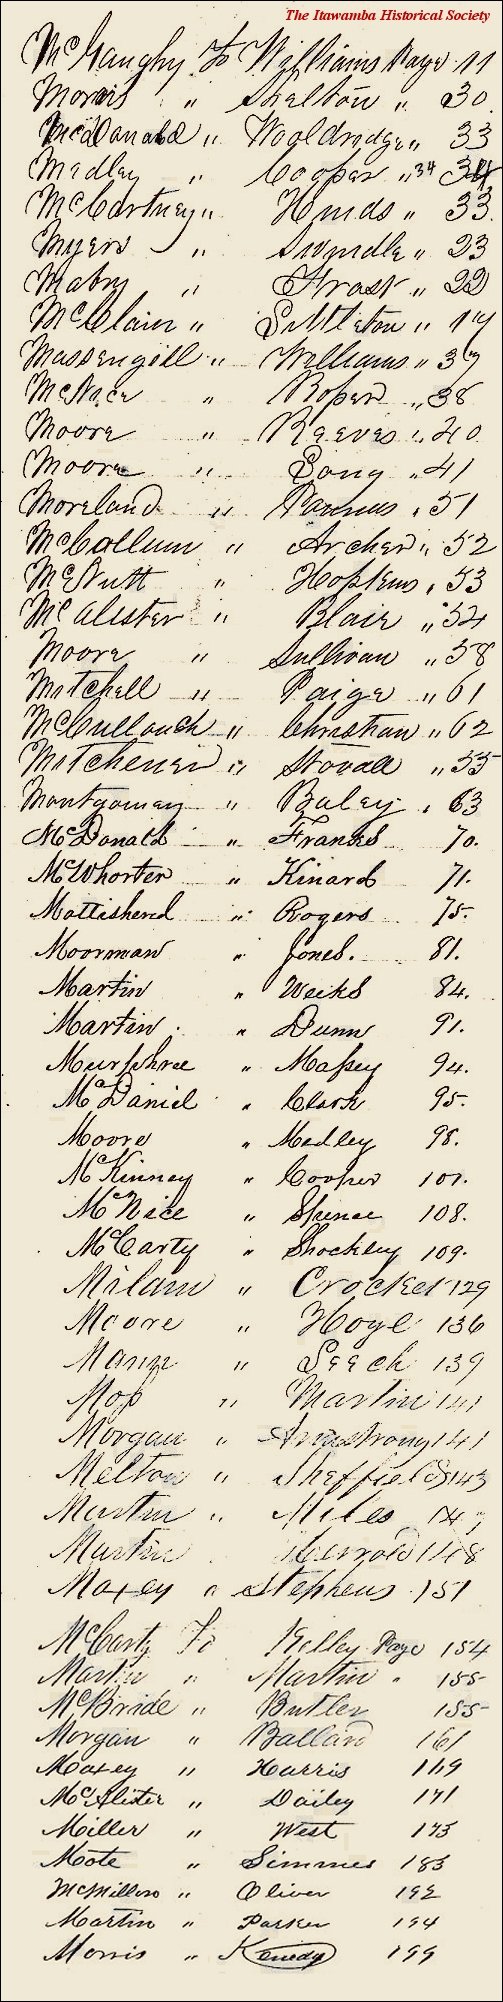 The Itawamba Historical Society
McGaughy To Williams Page 11
Morris " Shelton " 30
McDonald " Wooldridge " 33
Medley " Cooper " 34 34
McCartney " Hinds " 33
Myers " Swindle " 23
Mabry " Frost " 22
McClain " Littleton " 14
Massengill " Williams " 37
McNice " Roper " 38
Moore " Reeves " 40
Moore " Long " 41
Moreland " " 51
McCollum " Archer " 52
McNutt " Hopkins " 53
McAlister " Blair " 54
Moore " Sullivan " 58
Mitchell " Paige " 61
McCullouch " Christian " 62
Mitchener " Stovall " 55
Montgomery " Baley " 63
McDonald " Franks 70.
McWhorter " Kinard 71.
Mattishend " Rogers 75.
Moorman " Jones. 81.
Martin " Weeks 84.
Martin " Dunn 91.
Murphree " Massey 94.
McDaniel " Clark 95.
Moore " Medley 98.
McKinney " Cooper 101.
McNice " Spence 108.
McCarty " Shockley 109.
Milam " Crocket 129
Moore " Hoyle 136
Mann " Leech 139
" Martin 141
Morgan " Armstrong 141
Melton " Sheffield 143
Martin " Miles 147
Martin 148
Maxey " Stephens 151
McCarty To Kelley Page 154
Martin " Martin " 155
McBride " Butler 155
Morgan " Ballard 161
Maxey " Harris 169
McAlister " Dailey 171
Miller " West 173
Mote " Simmes 183
McMillon " Oliver 192
Martin " Parker 194
Morris " Kenedy 199